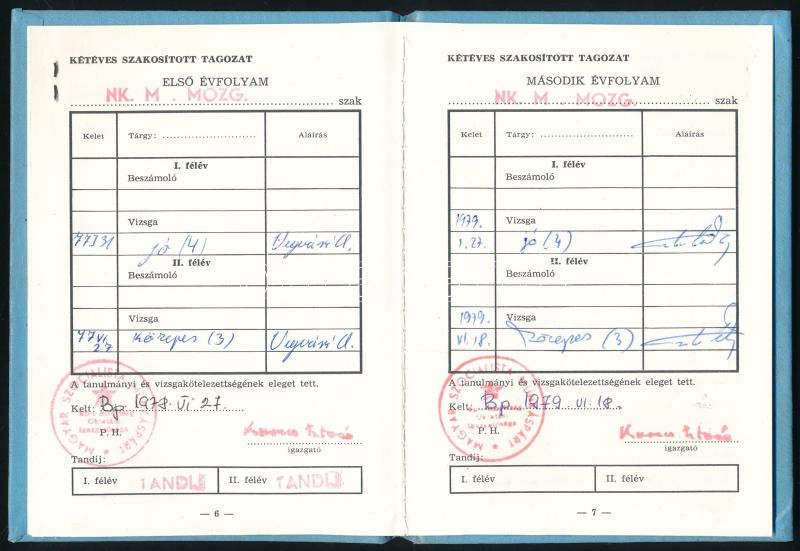 KÉTÉVES SZAKOSÍTOTT TAGOZAT
ELSŐ ÉVFOLYAM
NK. M. MOZG. szak
Kelet Tárgy: Aláírás
I. félév
Beszámoló
Vizsga
77 I 31 jó (4)
II. félév
Beszámoló
Vizsga
77 VI 27 közepes (3)
A tanulmányi és vizsgakötelezettségének eleget tett.
Kelt: Bp. 1978. VI. 27.
P. H.
igazgató
MAGYAR SZOCIALISTA MUNKÁSPÁRT
Oktatási
Igazgatósága
Tandíj:
I. félév TANDIJ II. félév TANDIJ
— 6 —
KÉTÉVES SZAKOSÍTOTT TAGOZAT
MÁSODIK ÉVFOLYAM
NK. M. MOZG. szak
Kelet Tárgy: Aláírás
I. félév
Beszámoló
1979. Vizsga
1. 27. jó (4)
II. félév
Beszámoló
1979. Vizsga
VI. 18. közepes (3)
A tanulmányi és vizsgakötelezettségének eleget tett.
Kelt: Bp. 1979. VI. 18.
P. H.
igazgató
MAGYAR SZOCIALISTA MUNKÁSPÁRT
Oktatási
Igazgatósága
Tandíj:
I. félév II. félév
— 7 —